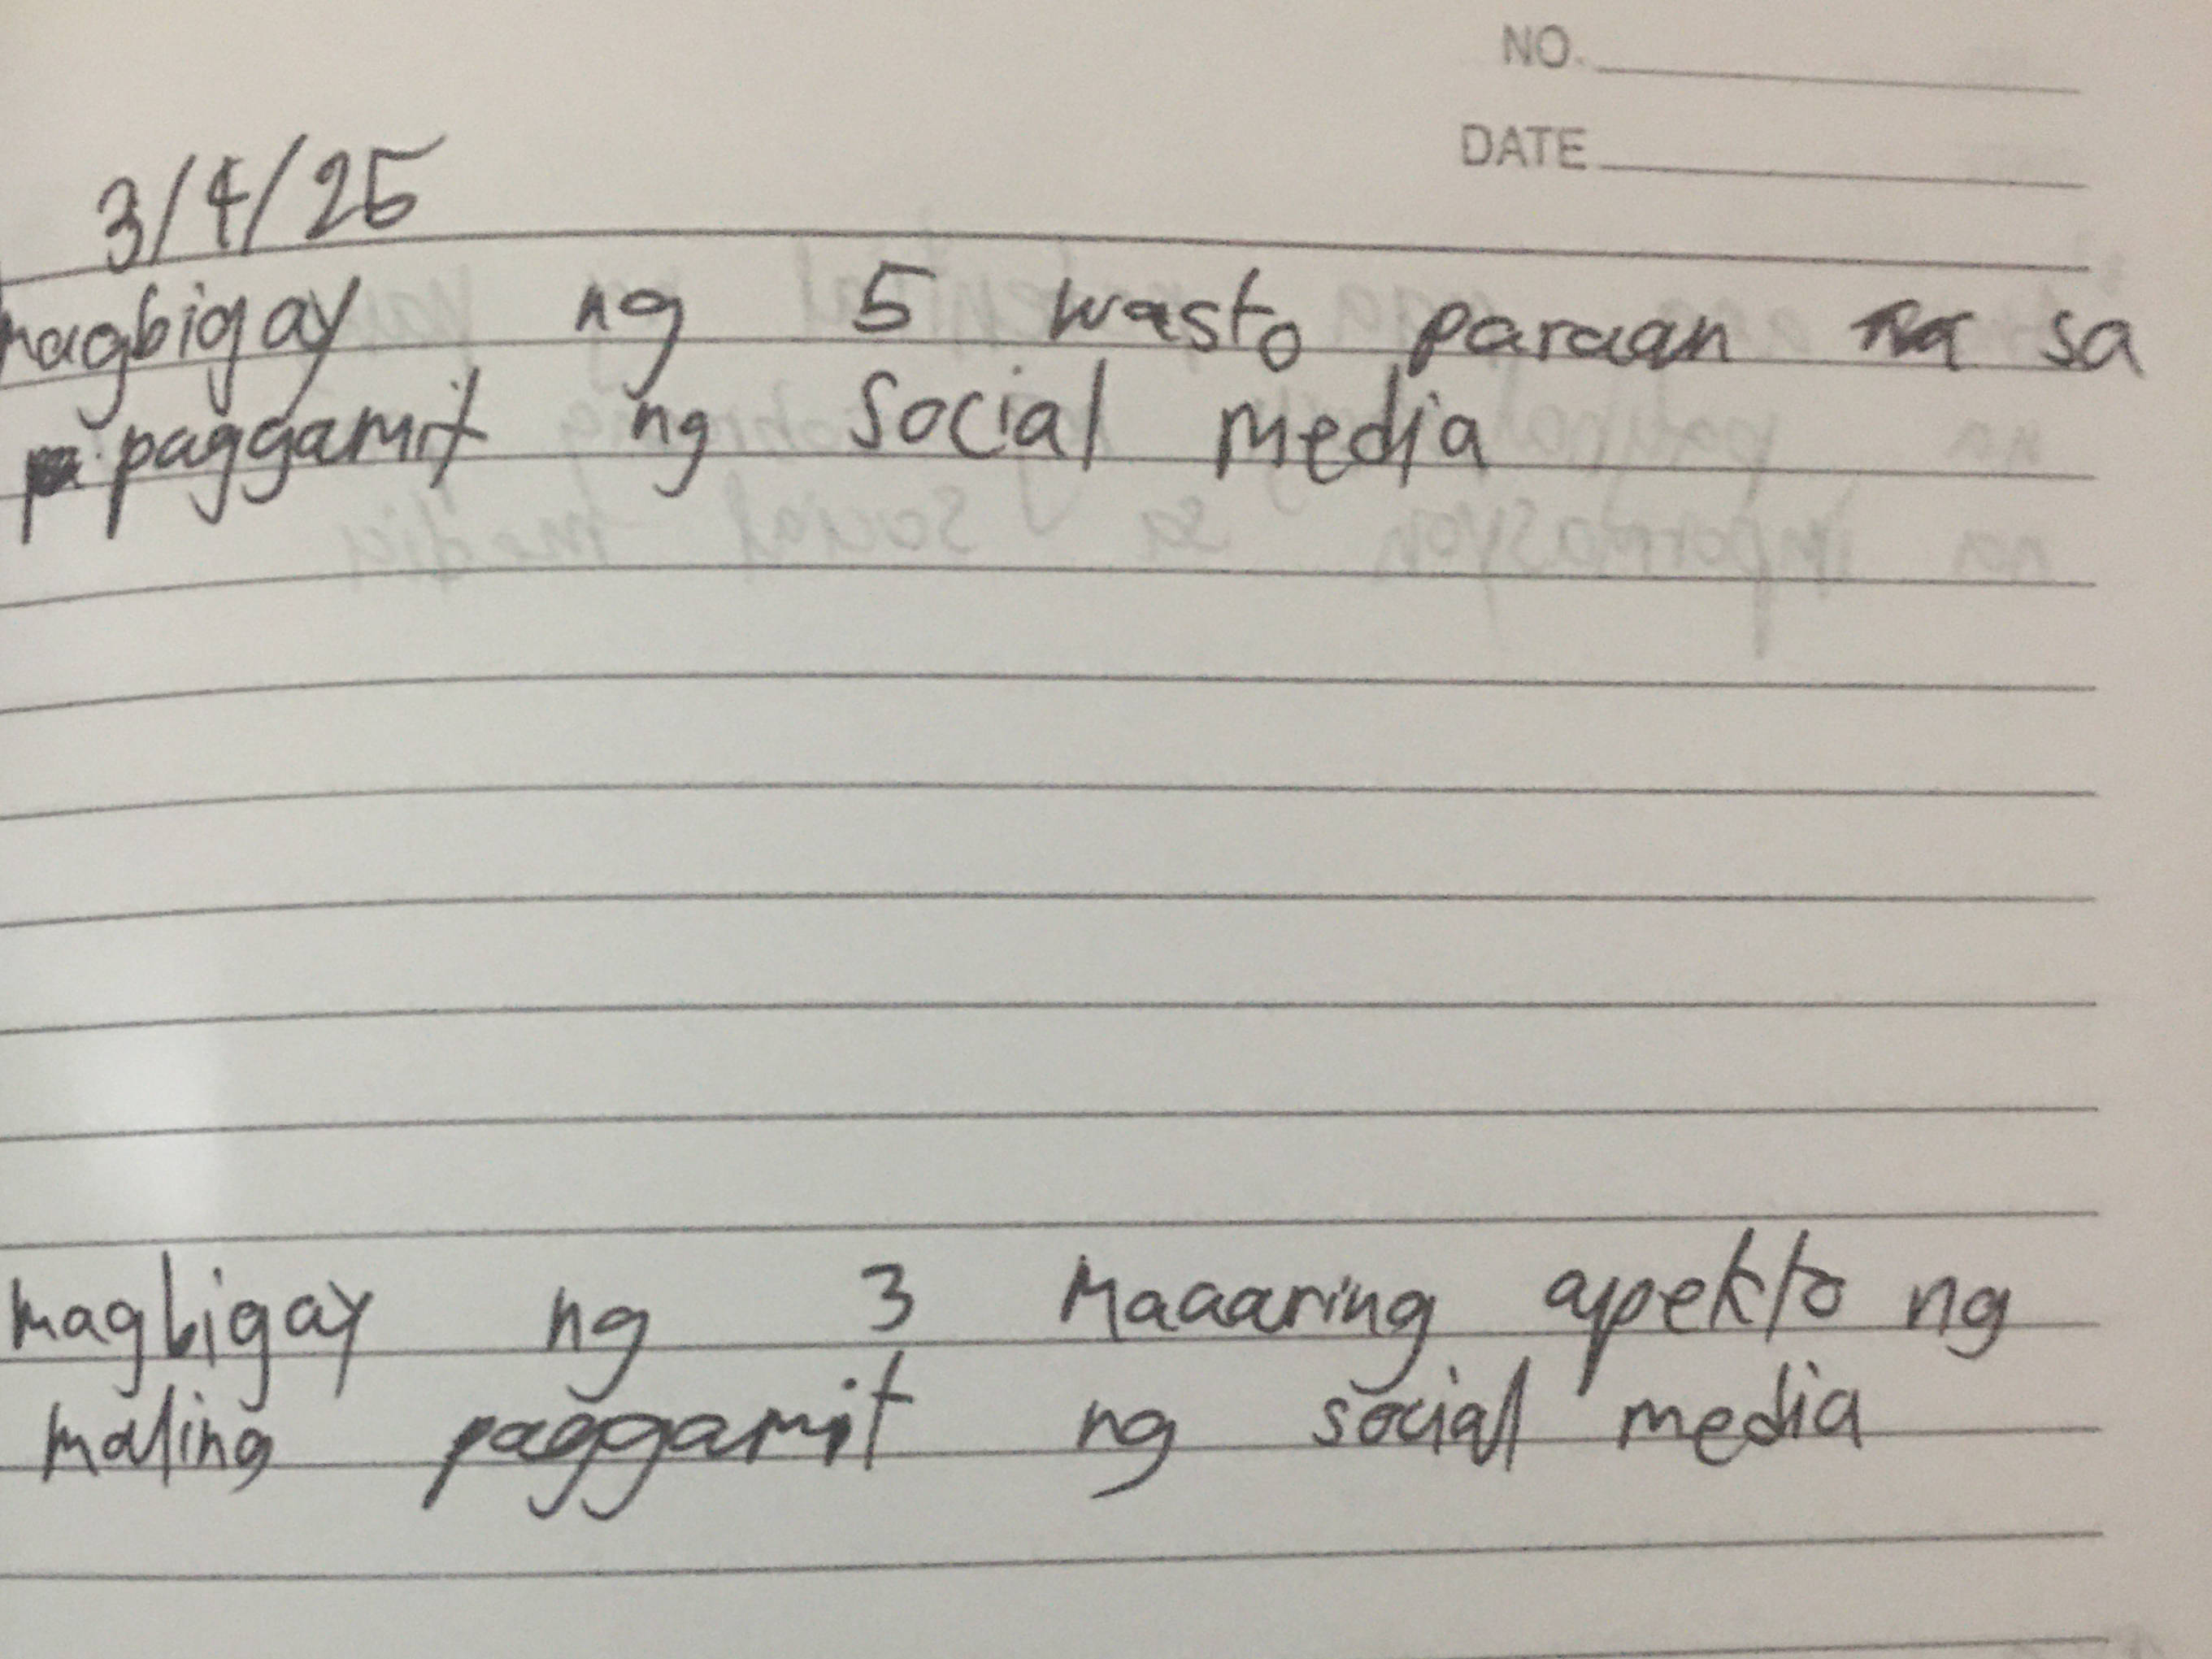 NO.
DATE
3/4/25
magbigay ng 5 wasto paraan sa
paggamit ng social media
magbigay ng 3 Maaaring apekto ng
maling paggamit ng social media